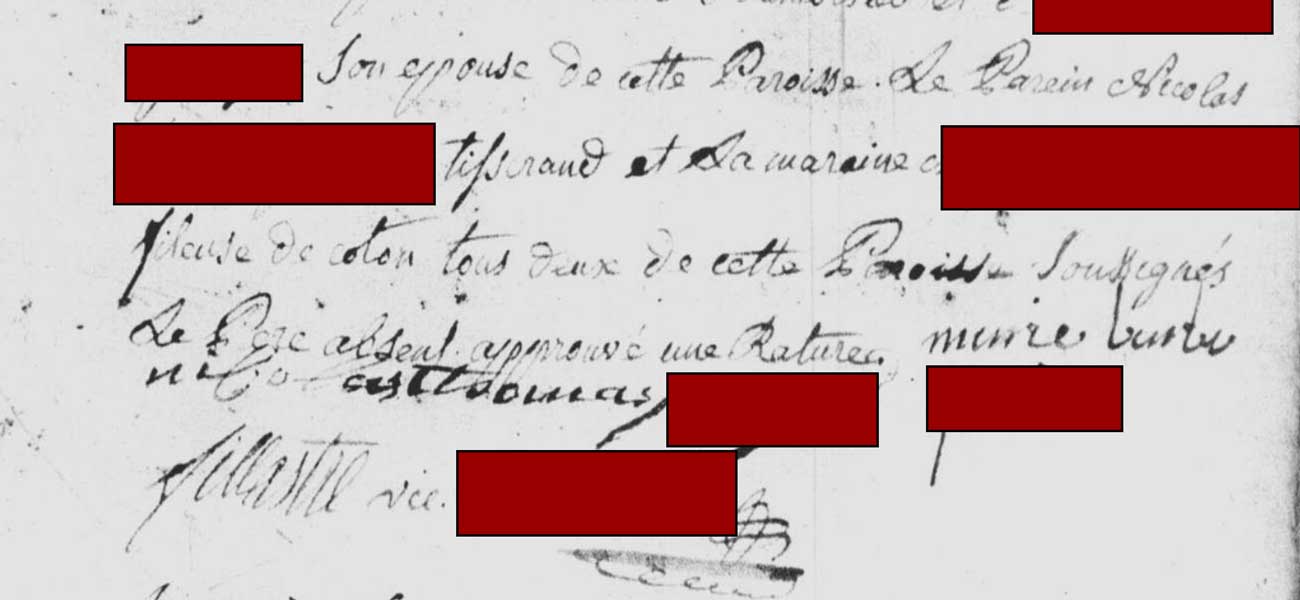 Son epouse de cette Paroisse. Le Parein Nicolas
tisserand et La maraine
fileuse de coton tous deux de cette Paroisse Soussignés
Le Pere absent. approuvé une Rature.
nicolas thomas
vic.